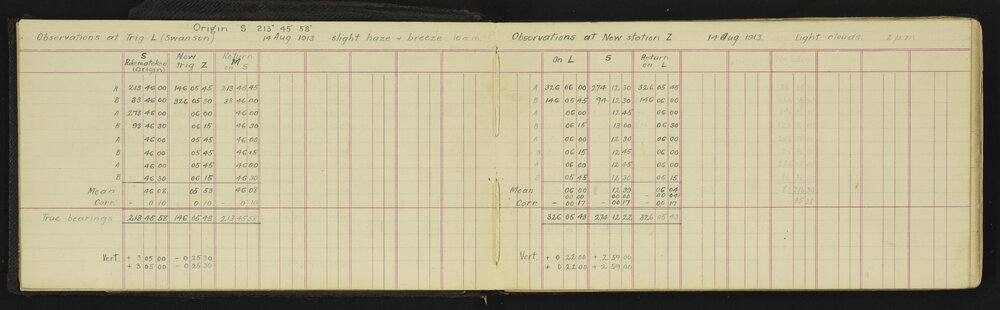 Origin S 213° 45' 58"
Observations at Trig L (Swanson) 14 Aug 1913 slight haze + breeze 10 a.m.
S (Origin) New trig Z Return on S
A 213 46 00 146 05 45 213 45 45
B 33 46 00 326 05 30 33 46 00
A 273 46 00 06 00 46 00
B 93 46 30 06 15 46 30
A 46 00 05 45 46 00
B 46 00 05 45 46 15
A 46 00 05 45 46 00
B 46 30 06 15 46 30
Mean 46 08 05 53 46 08
Corr. - 0 10 - 0 10 - 0 10
True bearings 213 45 58 146 05 43 213 45 58
Vert. + 3 05 00 - 0 25 30
+ 3 05 00 - 0 25 30
Observations at New station Z 14 Aug 1913. Light clouds. 2 p.m
On L S Return on L
A 326 06 00 274 12 30 326 05 45
B 146 05 45 94 12 30 146 06 00
A 06 00 12 45 06 00
B 06 15 13 00 06 30
A 06 00 12 30 06 00
B 06 15 12 45 06 15
A 06 00 12 45 06 00
B 05 45 12 30 06 15
Mean 06 00 12 39 06 04
00 00 00 00 00 04
Corr - 00 17 - 00 17 - 00 17
326 05 43 274 12 22 326 05 43
Vert. + 0 22 00 + 2 59 00
+ 0 22 00 + 2 59 00